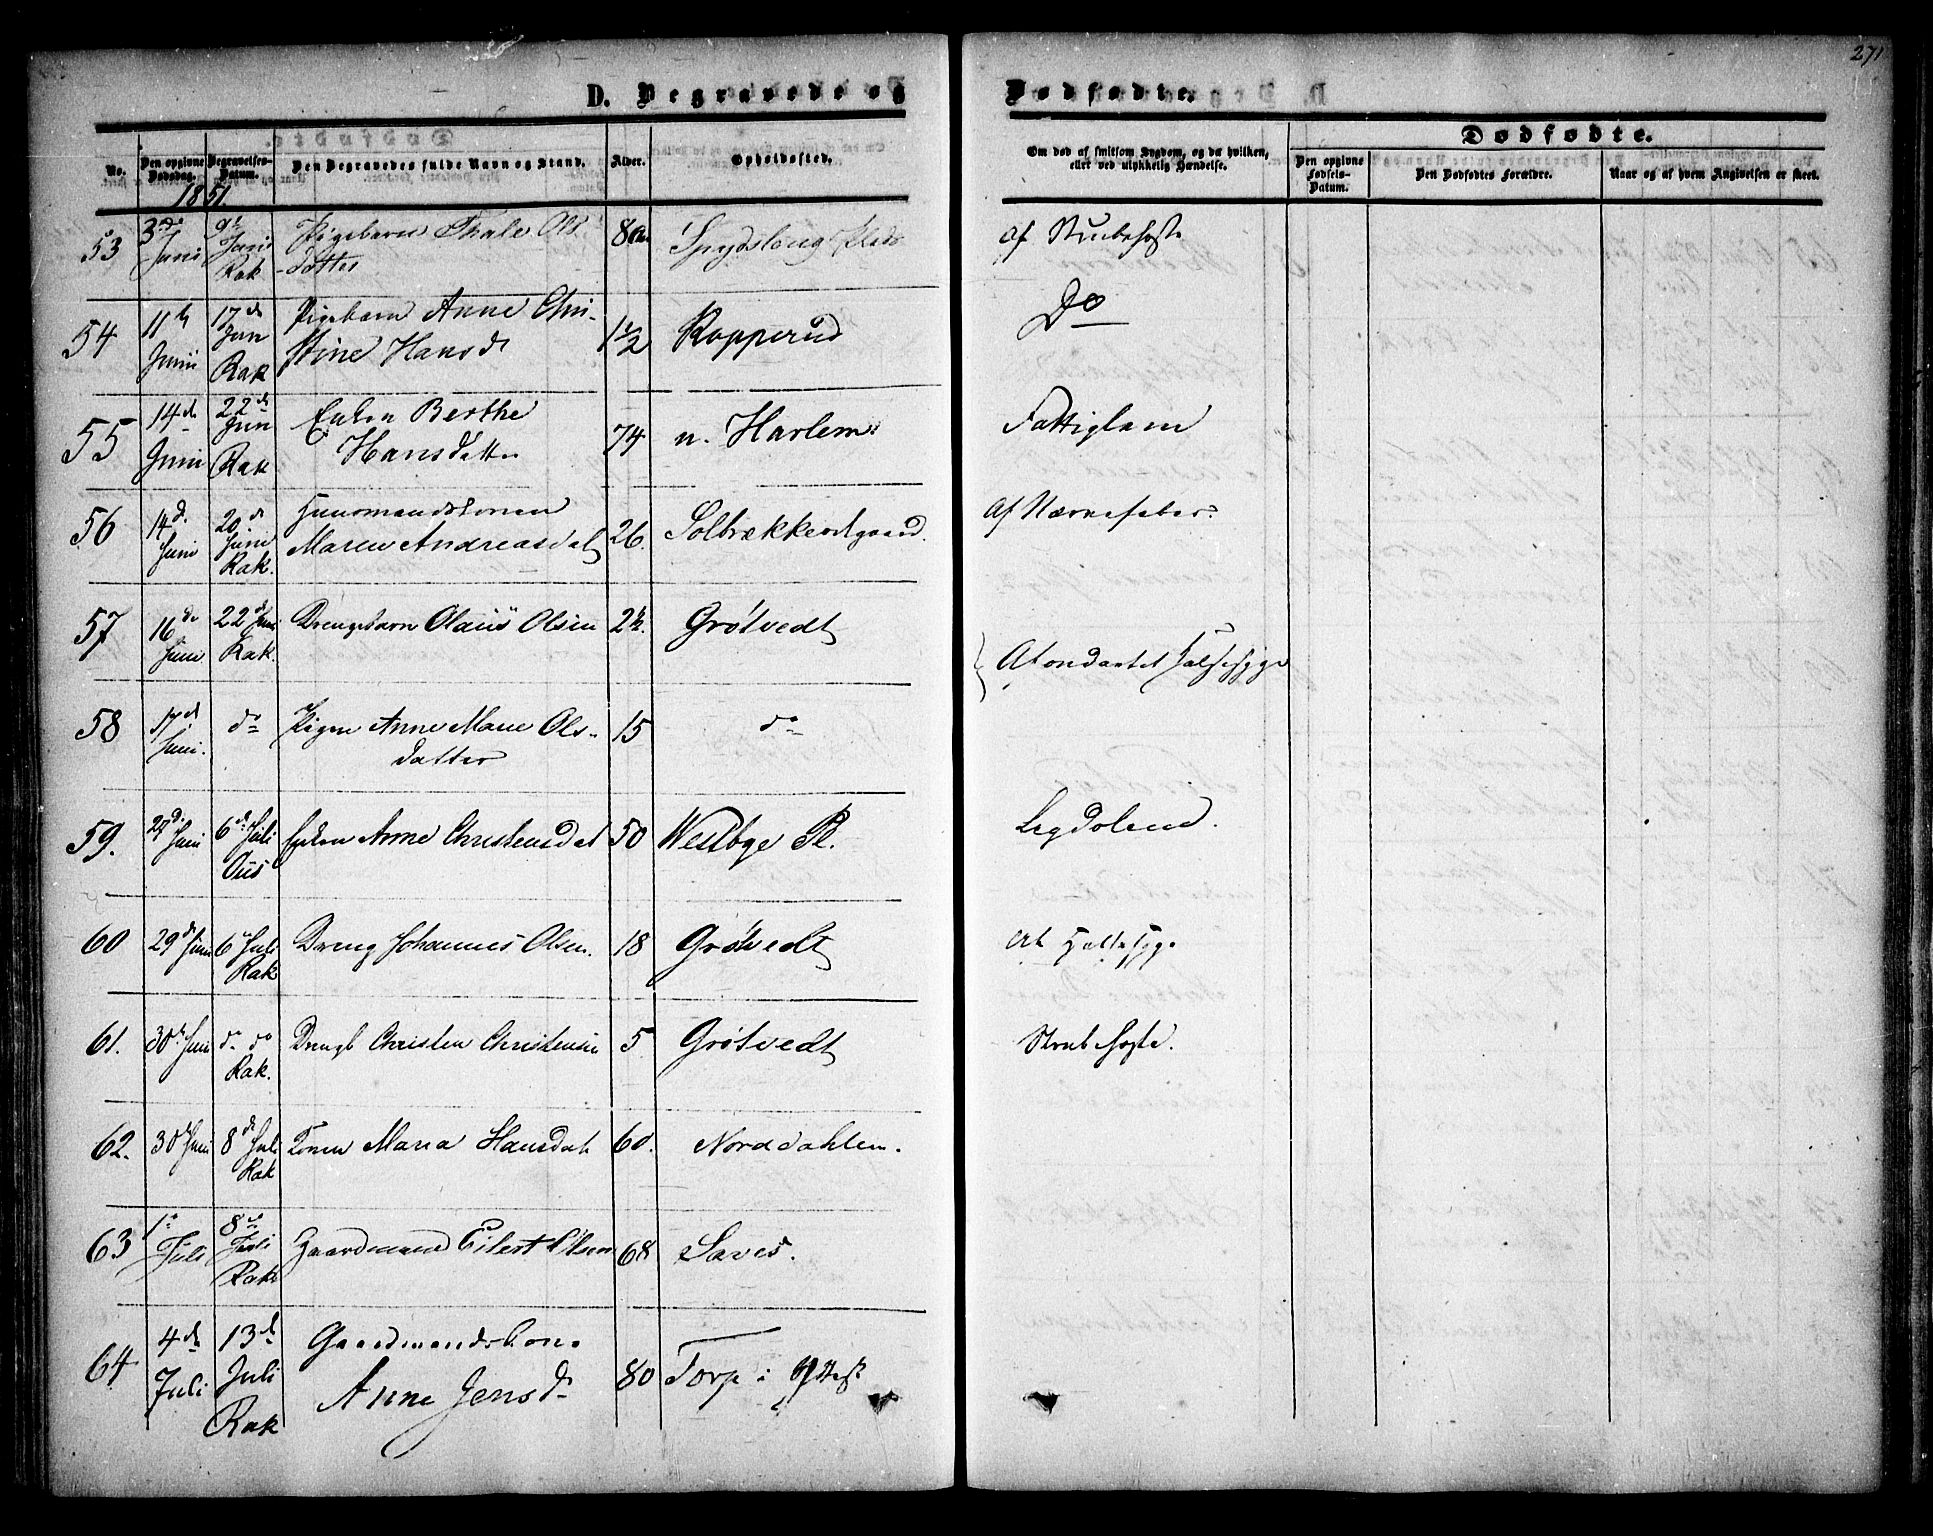 271
D. Begravede og Dødfødte.
Dødfødte.
No.
Den opgivne Dødsdag.
Begravelses-Datum.
Den Begravedes fulde Navn og Stand.
Alder.
Opholdssted.
Om død af smitsom Sygdom, og da hvilken, eller ved ulykkelig Hændelse.
Den opgivne Fødsels-Datum.
Den Dødfødtes Forældre.
Naar og af hvem Angivelsen er skeet.
1851.
53 3de Juni 9de Juni Rak Pigebarn Thale Ols
-datter Spydslong Plads af Strubehoste
54 11te Junii 17de Jun Rak Pigebarn Anne Chri-
stine Hansd 1½ Kopperud Do
55 14de Junii 22de Jun Rak Enken Berthe
Hansdatter 74 n. Harlem Fattiglem
56 14d. Juni 20de Juni Rak. Huusmandskonen
Maren Andreasdat 26. Solbrækkeødgaard. af Nervefeber.
57 16de Juni 22de Juni Rak. Drengebarn Olaus Olsen Grøtvedt
Af ondartet Halssyge
58 17d Juni. do Pigen Anne Marie Ols-
datter 15 do
59. 27d. Juni 6de Juli Aas Enken Anne Christensdat 50 Westbye Pl. Legdelem.
60 29de Juni 6 Juli Rak Dreng Johannes Olsen. 18 Grøtvedt af Halssyge
61. 30te Juni do do Rak. Drengb Christen Christensen 5 Grøtvedt Strubehoste.
62. 30te Juni 8de Juli Rak Konen Maria Hansdat 60. Norddahlen.
63 1ste Juli 8de Juli Rak Gaardmand Eilert Olsen 68 Saxes.
64 4de Juli 13de Juli Rak Gaardmandskone
Anne Jensd 80 Torp i